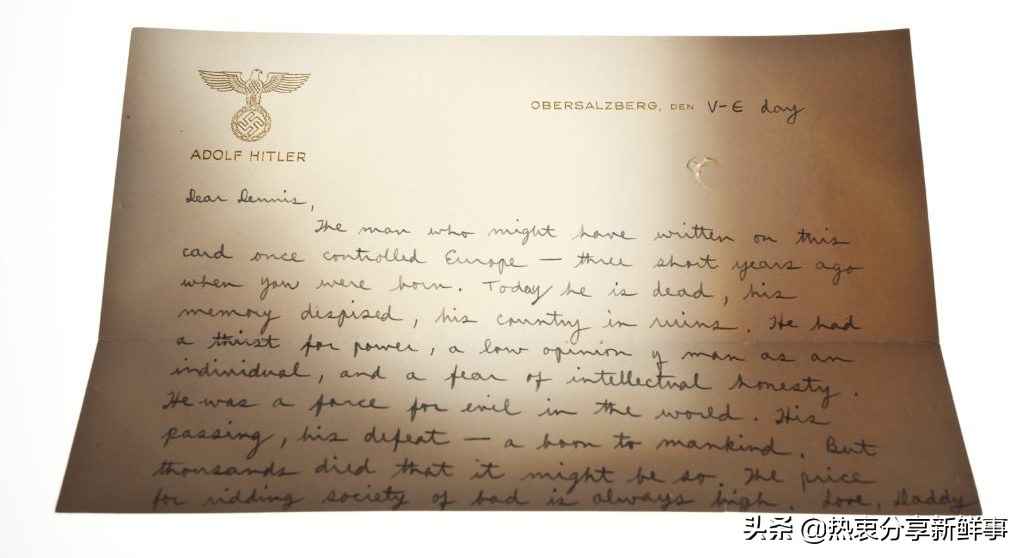 ADOLF HITLER
OBERSALZBERG, DEN V-E day
Dear Dennis,
The man who might have written on this
card once controlled Europe — three short years ago
when you were born. Today he is dead, his
memory despised, his country in ruins. He had
a thirst for power, a low opinion of man as an
individual, and a fear of intellectual honesty.
He was a force for evil in the world. His
passing, his defeat — a boon to mankind. But
thousands died that it might be so. The price
for ridding society of bad is always high. Love, Daddy
头条 @热衷分享新鲜事